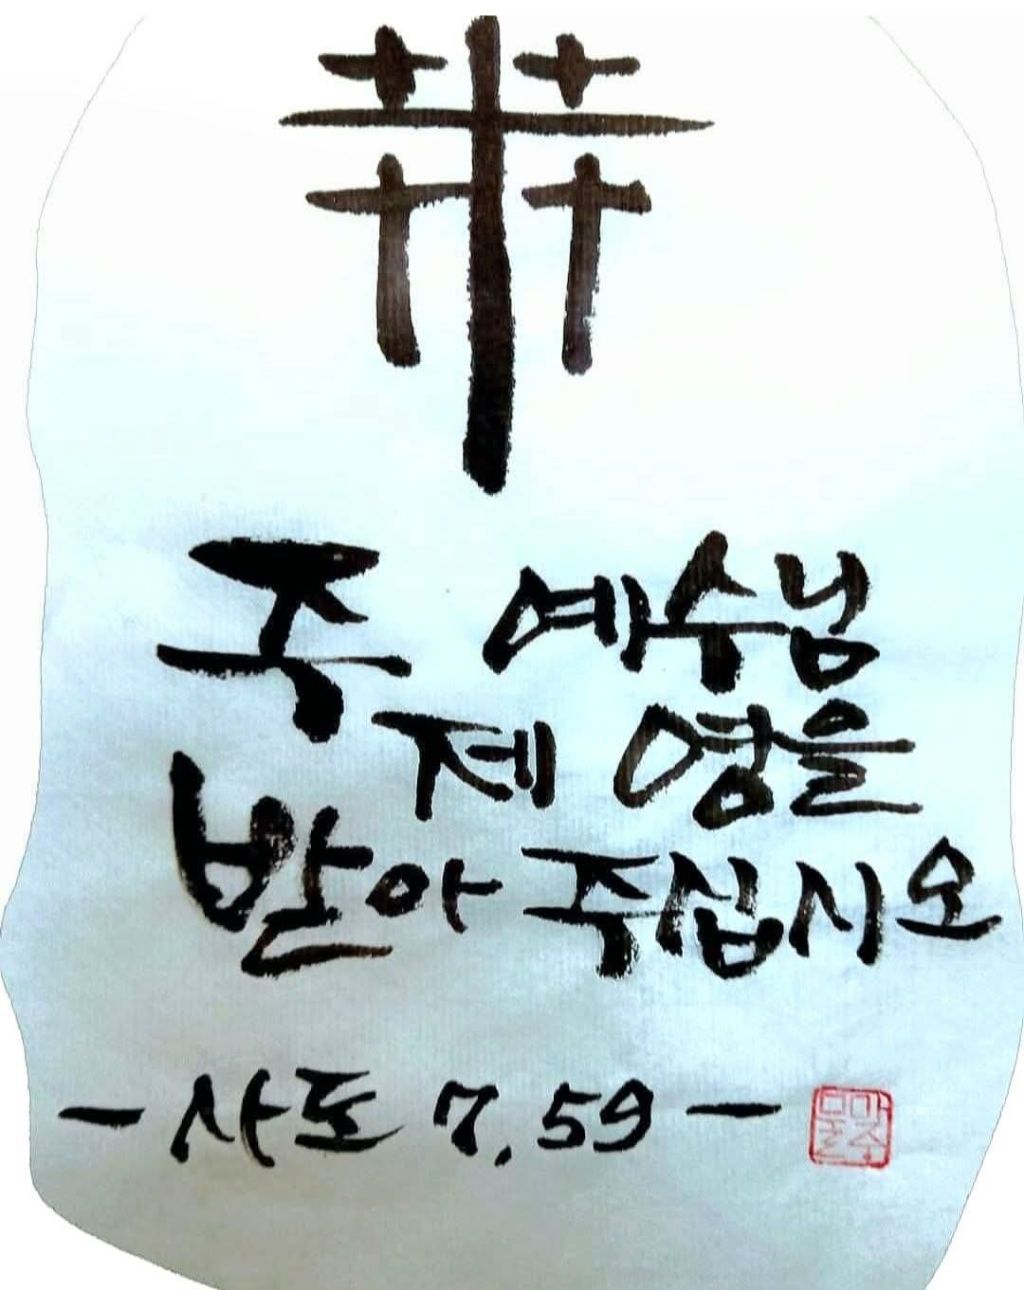 주 예수님
제 영을
받아 주십시오
- 사도 7,59 -